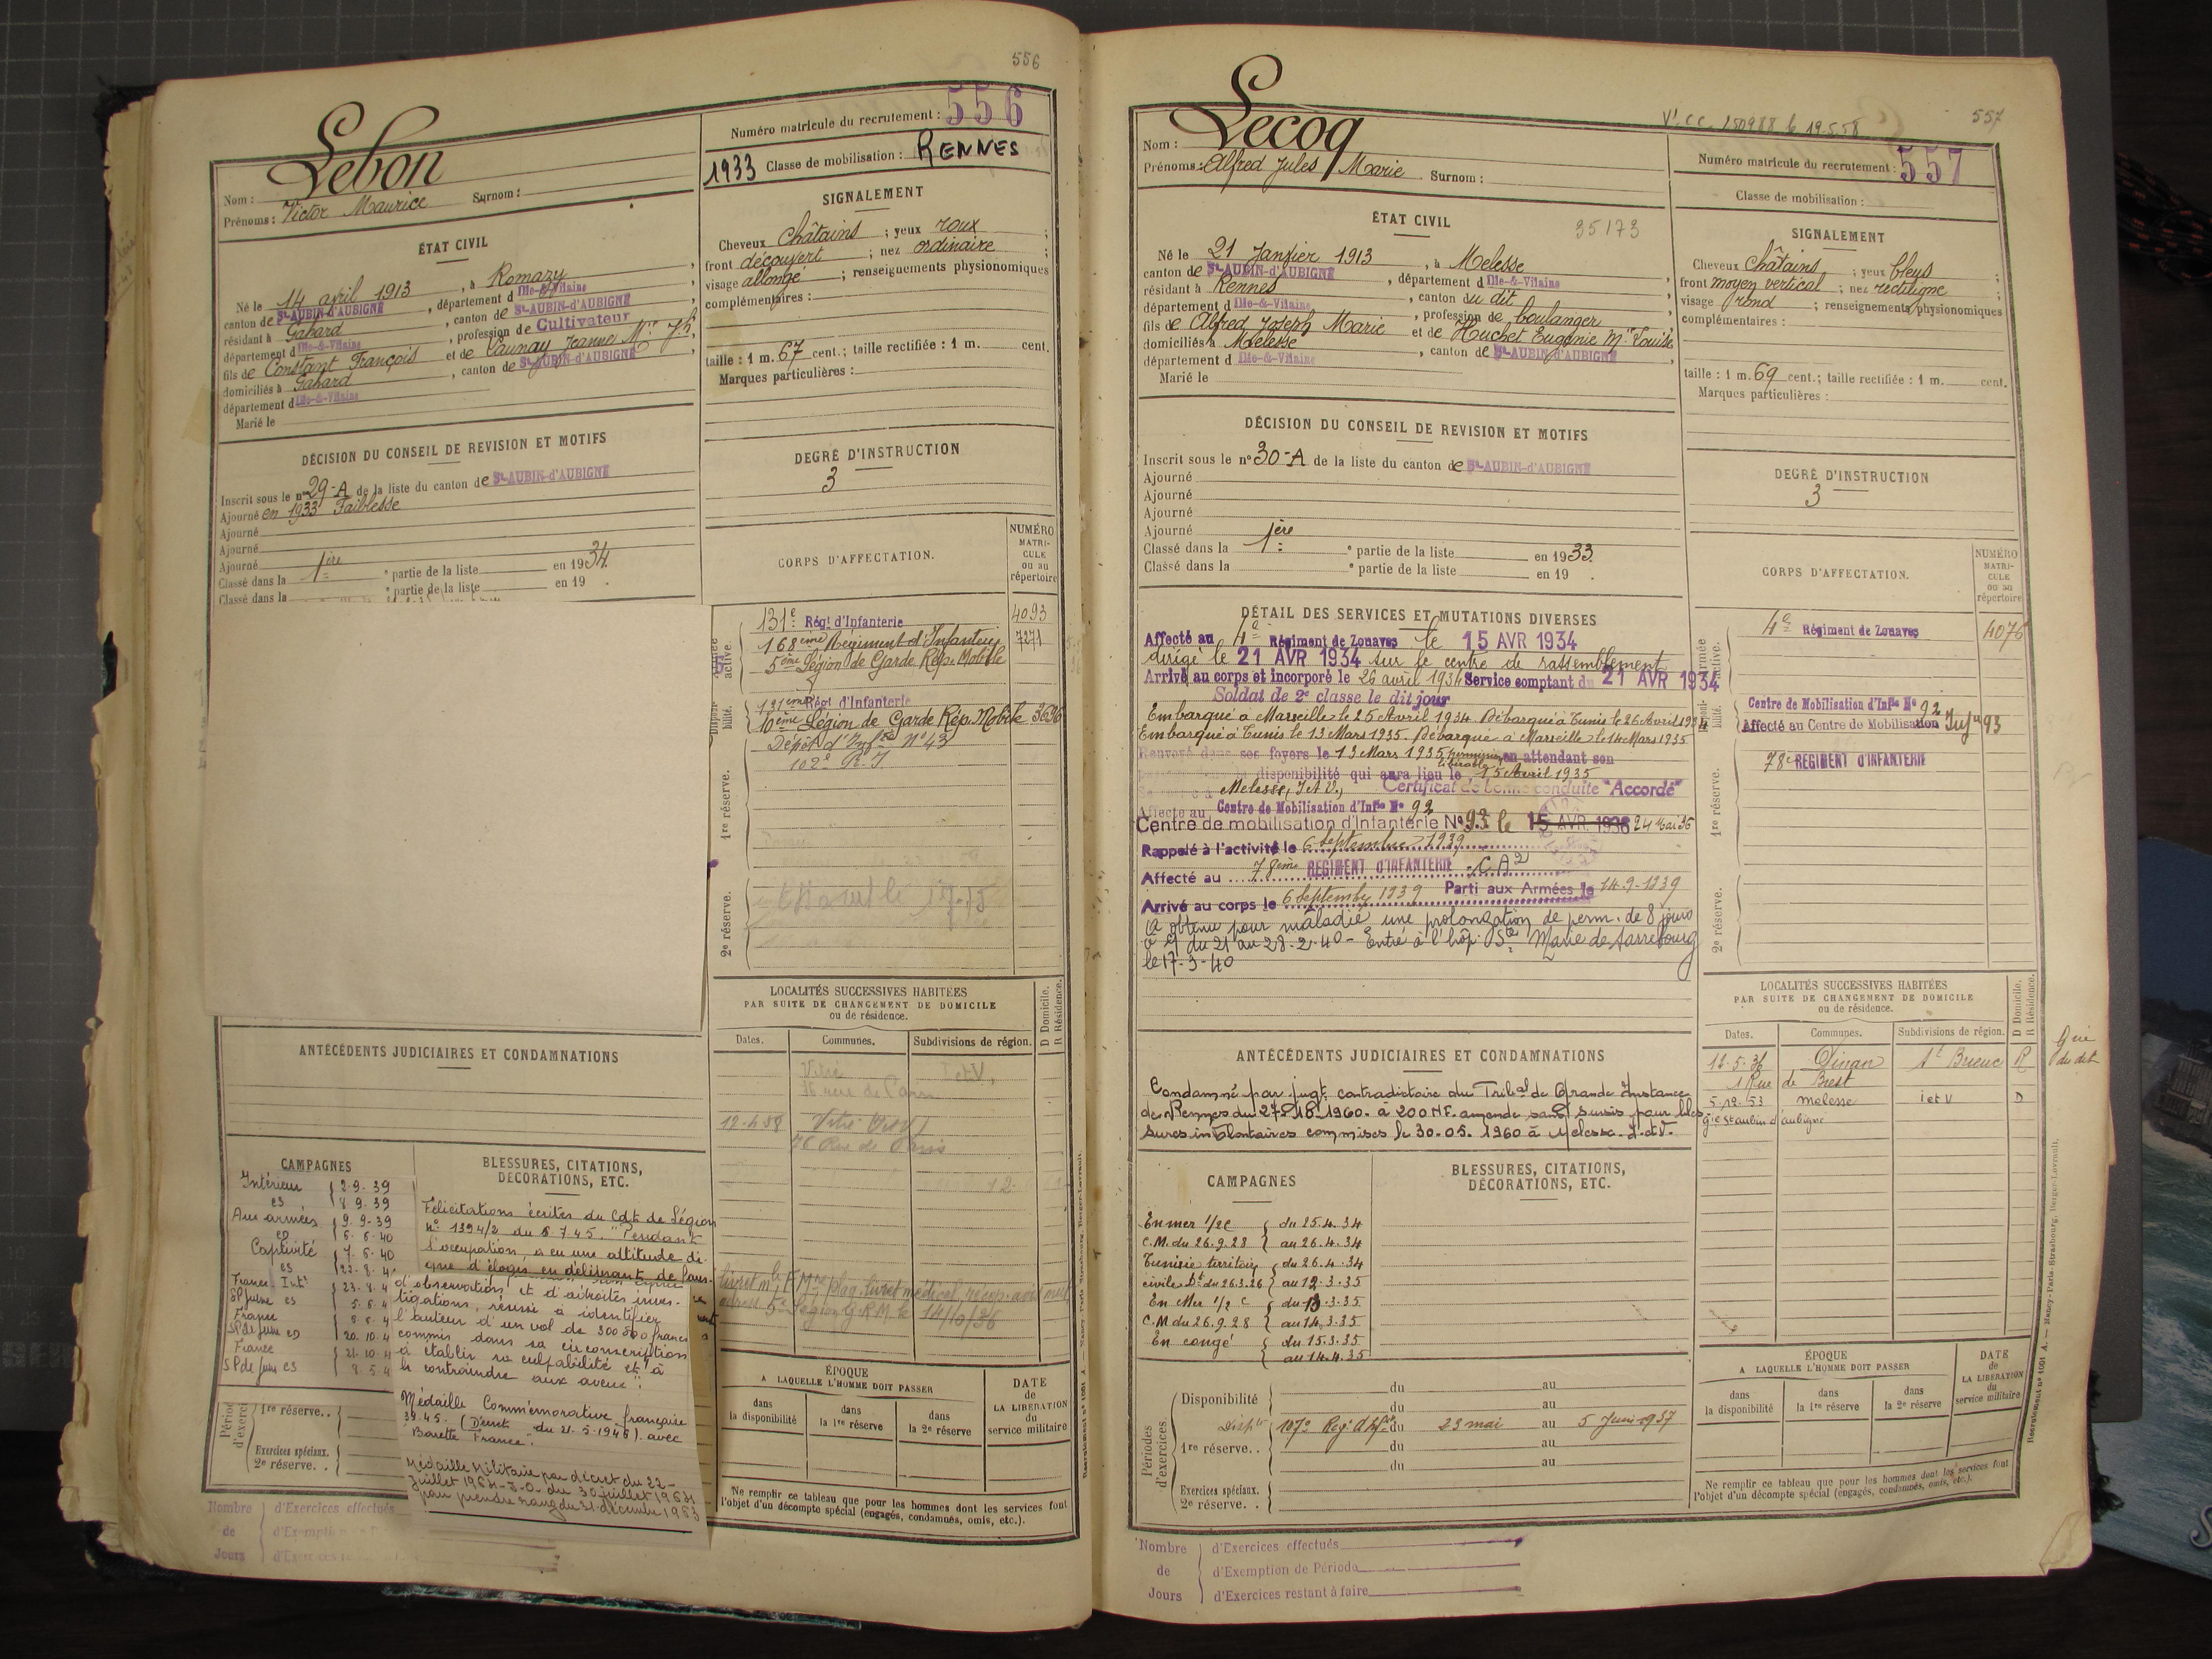 556
Lebon
Nom :
Prénoms : Victor Maurice Surnom :
Numéro matricule du recrutement : 556
1933 Classe de mobilisation : RENNES
ÉTAT CIVIL
Né le 14 avril 1913, à Romazy,
canton de St-AUBIN-d'AUBIGNÉ, département d Ille-&-Vilaine
résidant à Gahard, canton de St-AUBIN-d'AUBIGNÉ,
département d Ille-&-Vilaine, profession de Cultivateur
fils de Constant François et de Launay Jeanne Mie Jh,
domiciliés à Gahard, canton de St-AUBIN-d'AUBIGNÉ,
département d Ille-&-Vilaine
Marié le
SIGNALEMENT
Cheveux Châtains ; yeux roux ;
front découvert ; nez ordinaire ;
visage allongé ; renseignements physionomiques
complémentaires :
taille : 1 m. 67 cent.; taille rectifiée : 1 m. cent.
Marques particulières :
DÉCISION DU CONSEIL DE REVISION ET MOTIFS
Inscrit sous le n° 29-A de la liste du canton de St-AUBIN-d'AUBIGNÉ
Ajourné en 1933 Faiblesse
Ajourné
Ajourné
Ajourné
Classé dans la 1ère e partie de la liste en 1934.
Classé dans la e partie de la liste en 19 .
DEGRÉ D'INSTRUCTION
3
CORPS D'AFFECTATION.
NUMÉRO MATRICULE ou au répertoire
Armée active.
131e Régt d'Infanterie 4093
168ème Régiment d'Infanterie 7271
5ème Légion de Garde Rép. Mobile
Disponibilité.
131ème Régt d'Infanterie
10ème Légion de Garde Rép. Mobile 3696
1re réserve.
Dépôt d'Infrie N° 43
102e R.I
2e réserve.
LOCALITÉS SUCCESSIVES HABITÉES
PAR SUITE DE CHANGEMENT DE DOMICILE
ou de résidence.
Dates. Communes. Subdivisions de région. D Domicile. R Résidence.
Vitré I et V.
36 rue de Paris
12-4-58 Vitré (I et V)
76 Rue de Paris
ANTÉCÉDENTS JUDICIAIRES ET CONDAMNATIONS
CAMPAGNES
Intérieur 2-9-39
es 8 9.39
Aux armées 9.9-39
6.6-40
Captivité 7.6.40
es
France Intr
France
France
BLESSURES, CITATIONS,
DÉCORATIONS, ETC.
Félicitations écrites du Cdt de Légion
n° 1394/2 du 6 7 45. "Pendant
l'occupation, a eu une attitude di-
gne d'éloges en délivrant de faus-
d'observation, et d'adroites inves-
tigations, réussi à identifier
l'auteur d'un vol de 300 000 francs
commis dans sa circonscription
à établir sa culpabilité et à
le contraindre aux aveux".
Médaille Commémorative française
39.45. (Décret du 21.5.1946) avec
Barette "France".
Médaille Militaire par décret du 22-
Juillet 1964 J.O. du 30 juillet 1964
pour prendre rang du 31 décembre 1963
1re réserve. .
Exercices spéciaux.
2e réserve. .
Nombre de Jours
d'Exercices effectués
ÉPOQUE
A LAQUELLE L'HOMME DOIT PASSER
dans la disponibilité
dans la 1re réserve
dans la 2e réserve
DATE de LA LIBÉRATION du service militaire
Ne remplir ce tableau que pour les hommes dont les services font
l'objet d'un décompte spécial (engagés, condamnés, omis, etc.).
557
V' C.C. 150988 le 19.5.58
Nom : Lecoq
Prénoms : Alfred Jules Marie Surnom :
Numéro matricule du recrutement : 557
Classe de mobilisation :
ÉTAT CIVIL
35173
Né le 21 Janvier 1913, à Melesse,
canton de St-AUBIN-d'AUBIGNÉ, département d Ille-&-Vilaine,
résidant à Rennes, canton su dit,
département d Ille-&-Vilaine, profession de boulanger
fils de Alfred Joseph Marie et de Huchet Eugénie Mie Louise
domiciliés à Melesse, canton de St-AUBIN-d'AUBIGNÉ,
département d Ille-&-Vilaine
Marié le
SIGNALEMENT
Cheveux Châtains ; yeux bleus ;
front moyen vertical ; nez rectiligne ;
visage rond ; renseignements physionomiques
complémentaires :
taille : 1 m. 69 cent.; taille rectifiée : 1 m. cent.
Marques particulières :
DÉCISION DU CONSEIL DE REVISION ET MOTIFS
Inscrit sous le n° 30-A de la liste du canton de St-AUBIN-d'AUBIGNÉ
Ajourné
Ajourné
Ajourné
Ajourné
Classé dans la 1ère e partie de la liste en 1933.
Classé dans la e partie de la liste en 19 .
DEGRÉ D'INSTRUCTION
3
DÉTAIL DES SERVICES ET MUTATIONS DIVERSES
Affecté au 4e Régiment de Zouaves le 15 AVR 1934
dirigé le 21 AVR 1934 sur le centre de rassemblement
Arrivé au corps et incorporé le 26 avril 1934 Service comptant du 21 AVR 1934
Soldat de 2e classe le dit jour
Embarqué à Marseille le 25 Avril 1934 Débarqué à Tunis le 26 Avril 1934
Embarqué à Tunis le 13 Mars 1935. Débarqué à Marseille le 14 Mars 1935
Renvoyé dans ses foyers le 13 Mars 1935 permission libérable en attendant son
disponibilité qui aura lieu le 15 Avril 1935
Melesse, I et V., Certificat de bonne conduite "Accordé"
Affecté au Centre de Mobilisation d'Infie N° 92
Centre de mobilisation d'Infanterie N° 93 le 15 AVR 1936 24 Mai 36
Rappelé à l'activité le 6 septembre 1939
Affecté au 78ème REGIMENT D'INFANTERIE C.A2
Arrivé au corps le 6 Septembre 1939 Parti aux Armées le 14-9-1939
A obtenu pour maladie une prolongation de perm. de 8 jours
du 21 au 28-2-40 - Entré à l'hôp. Ste Marie de Sarrebourg
le 17-3-40
CORPS D'AFFECTATION.
NUMÉRO MATRICULE ou au répertoire
Armée active.
4e Régiment de Zouaves 4076
Centre de Mobilisation d'Infie N° 92
Affecté au Centre de Mobilisation Infie 93
1re réserve.
78e REGIMENT D'INFANTERIE
2e réserve.
LOCALITÉS SUCCESSIVES HABITÉES
PAR SUITE DE CHANGEMENT DE DOMICILE
ou de résidence.
Dates. Communes. Subdivisions de région. D Domicile. R Résidence.
12-5-36 Dinan St Brieuc R
1 Rue de Brest
5.12.53 Melesse I et V D
gie St aubin d'aubigné
ANTÉCÉDENTS JUDICIAIRES ET CONDAMNATIONS
Condamné par jugt contradictoire du Tribal de Grande Instance
de Rennes du 27 1960 à 200 NF. amende sans sursis pour bles-
sures involontaires commises le 30.05.1960 à Melesse I. et V.
CAMPAGNES
En mer 1/2 C du 25.4.34
C.M. du 26.9.28 au 26.4.34
Tunisie territoire du 26.4.34
civile Dt du 26.3.26 au 12.3.35
En Mer 1/2 C du 13.3.35
C.M du 26.9.28 au 14.3.35
En congé du 15.3.35
au 14.4.35
BLESSURES, CITATIONS,
DÉCORATIONS, ETC.
Périodes d'exercices.
Disponibilité du au
du au
Dispté 107e Regt d'Infrie du 23 mai au 5 Juin 1937
1re réserve. . du au
du au
Exercices spéciaux.
2e réserve. .
ÉPOQUE
A LAQUELLE L'HOMME DOIT PASSER
dans la disponibilité
dans la 1re réserve
dans la 2e réserve
DATE de LA LIBÉRATION du service militaire
Ne remplir ce tableau que pour les hommes dont les services font
l'objet d'un décompte spécial (engagés, condamnés, omis, etc.).
Nombre de Jours
d'Exercices effectués
d'Exemption de Période
d'Exercices restant à faire